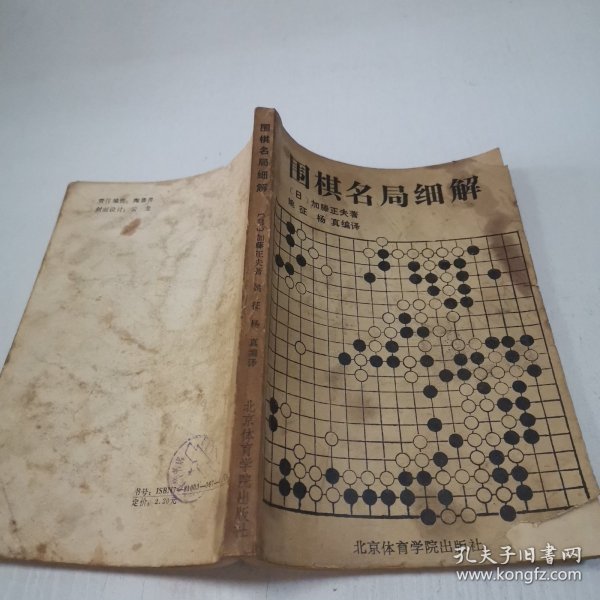 围棋名局细解
〔日〕加藤正夫著
姚征 杨真编译
北京体育学院出版社
围棋名局细解
〔日〕加藤正夫著 姚征 杨真编译
北京体育学院出版社
责任编辑:
封面设计:
书号: ISBN7-81003-
定价: 2.20元
孔夫子旧书网
www.kongfz.com